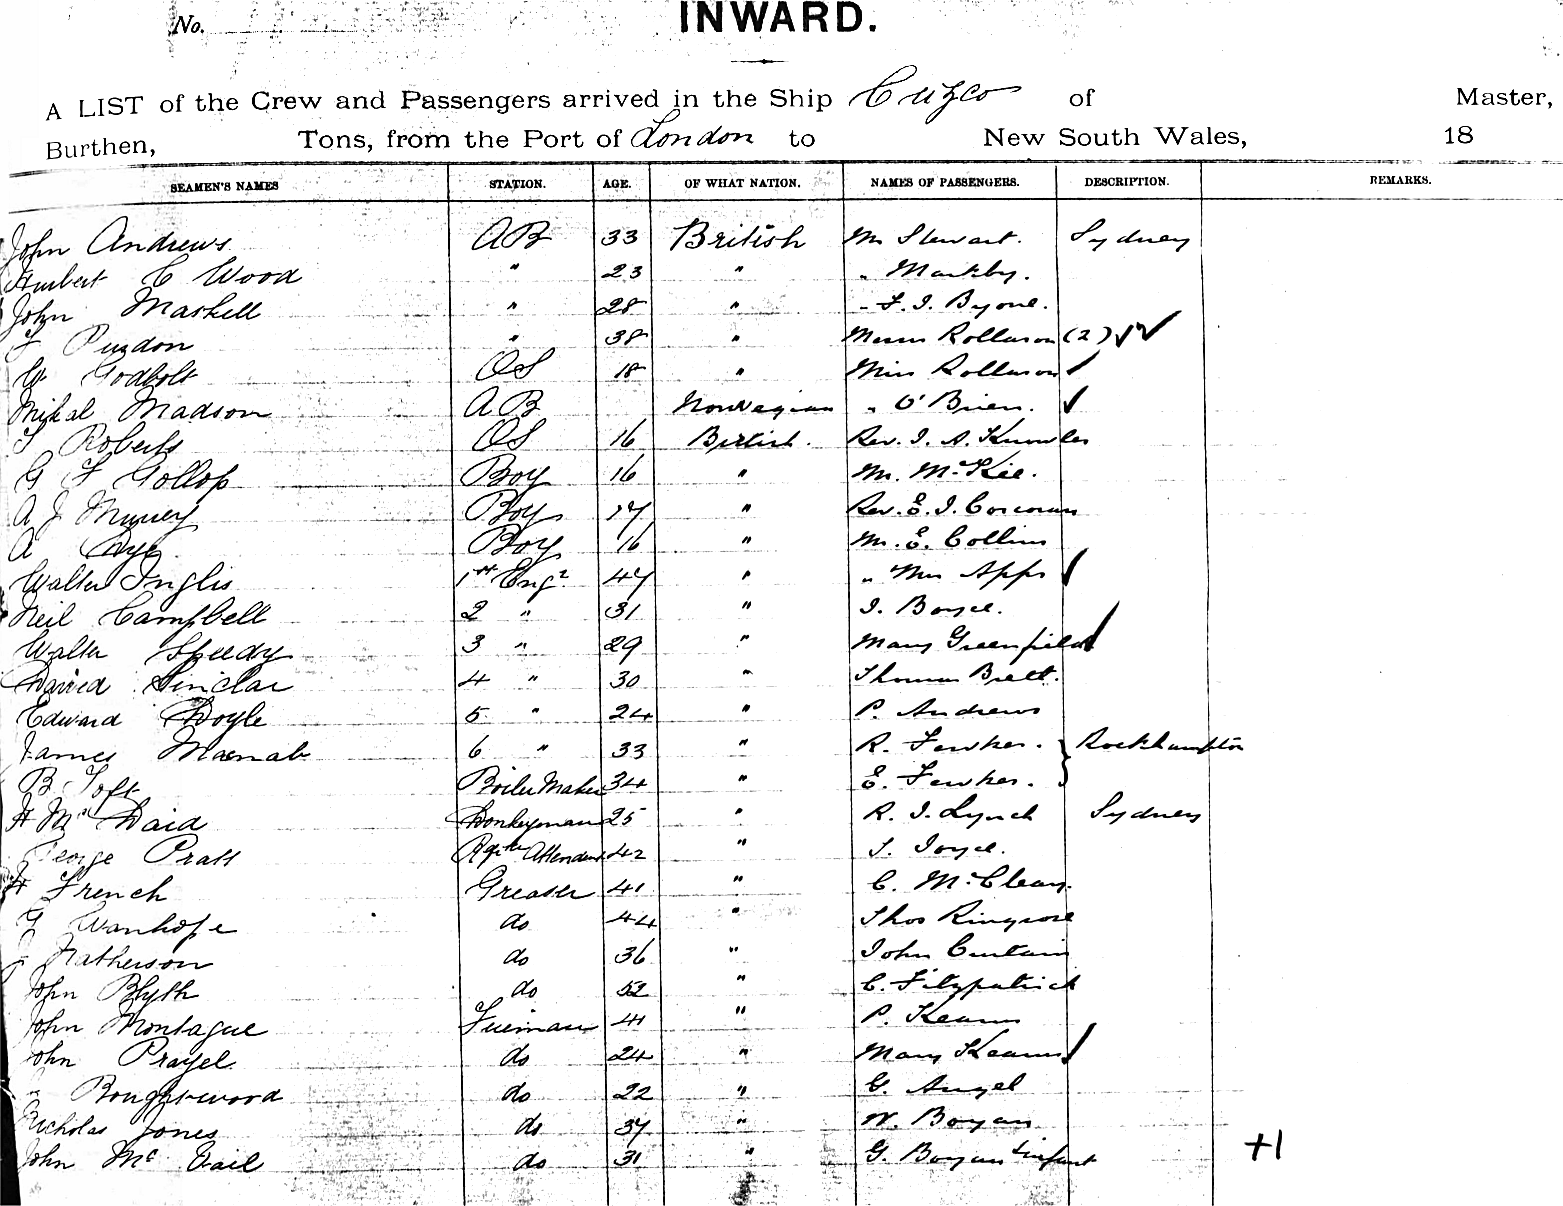 No.
INWARD.
A LIST of the Crew and Passengers arrived in the Ship Cuzco of Master,
Burthen, Tons, from the Port of London to New South Wales, 18
SEAMEN'S NAMES STATION. AGE. OF WHAT NATION. NAMES OF PASSENGERS. DESCRIPTION. REMARKS.
John Andrews AB 33 British Mr Stewart. Sydney
C Wood " 23 " " Markby.
John Maskell " 28 " " F. J. Byone.
Purdon " 38 " Messrs Rollason (2) ✓✓
W Godbolt OS 18 " Miss Rollason ✓
Mikal Madson AB Norwegian " O'Brien. ✓
T Roberts OS 16 British. Rev. J. A. Knowles
G F Gollop Boy 16 " Mr. McKie.
A J Murrey Boy 17 " Rev. E. J. Corcoran
A Dye Boy 16 " Mr. E. Collins
Walter Inglis 1st Engr 47 " " Mrs Apps ✓
Neil Campbell 2 " 31 " J. Boyce.
Walter Speedy 3 " 29 " Mary Greenfield ✓
David Sinclar 4 " 30 " Thomas Brett.
Edward Doyle 5 " 24 " P. Andrews
James Macnab 6 " 33 " R. Fewkes. } Rockhampton
B Toft Boiler Maker 34 " E. Fewkes. }
H Mc Daid Donkeyman 25 " R. J. Lynch Sydney
George Pratt Attendant 42 " J. Joyce.
H French Greaser 41 " C. McCleary.
G Wanhope do 44 " Thos Ringrose
J Matherson do 36 " John Curtain
John Blyth do 52 " C. Fitzpatrick
John Montague Fireman 41 " P. Kearns
John Prayel do 24 " Mary Kearns ✓
Boughtwood do 22 " G. Angel
Nicholas Jones do 37 " W. Boyan
John Mc Vail do 31 " G. Boyan + infant
+1